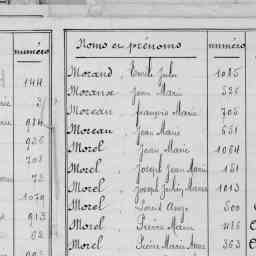 numéro
144
984
935
703
75
1079
913
62
98
Noms et prénoms numéro
Morand, Emile Jules 1085
Morange, Jean Marie 525
Moreau, François Marie 705
Moreau, Jean Marie 551
Morel, Jean Marie 1064
Morel, Joseph Jean Marie 151
Morel, Joseph Julien Marie 1013
Morel, Louis Ange 500
Morel, Pierre Marie 486
Morel, Pierre Marie Anne 363